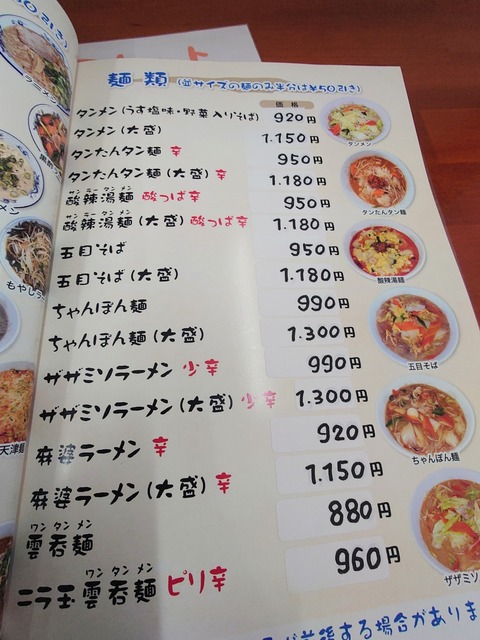 麺類 (㊣サイズの麺のみ半分は¥50引き)
価格
タンメン(うす塩味・野菜入りそば) 920円
タンメン(大盛) 1.150円
タンたんタン麺 辛 950円
タンたんタン麺(大盛) 辛 1.180円
サンラータンメン
酸辣湯麺 酸っぱ辛 950円
サンラータンメン
酸辣湯麺(大盛) 酸っぱ辛 1.180円
五目そば 950円
五目そば(大盛) 1.180円
ちゃんぽん麺 990円
ちゃんぽん麺(大盛) 1.300円
ザザミソラーメン 少辛 990円
ザザミソラーメン(大盛) 少辛 1.300円
麻婆ラーメン 辛 920円
麻婆ラーメン(大盛) 辛 1.150円
ワンタンメン
雲呑麺 880円
ワンタンメン
ニラ玉雲呑麺 ピリ辛 960円
タンメン
タンたんタン麺
酸辣湯麺
五目そば
ちゃんぽん麺
ザザミソ
が前後する場合がありま
ラーメン
メン
もやし
天津麺
0引き)